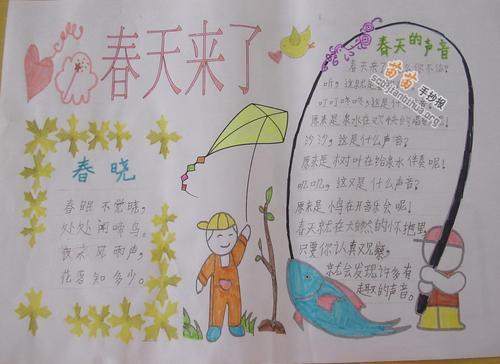 春天来了
春晓
春眠不觉晓，
处处闻啼鸟。
夜来风雨声，
花落知多少。
春天的声音
苗苗手抄报
scoijianbihua.org
春天来了
听，这
叮叮咚咚，这是什么声
原来是泉水在欢快的唱
沙沙，这是什么声音？
原来是树叶在给泉水伴奏呢！
叽叽，这又是什么声音？
原来是小鸟在开音乐会呢！
春天就在大自然的怀抱里，
只要你认真观察，
就会发现许多有
趣的声音。